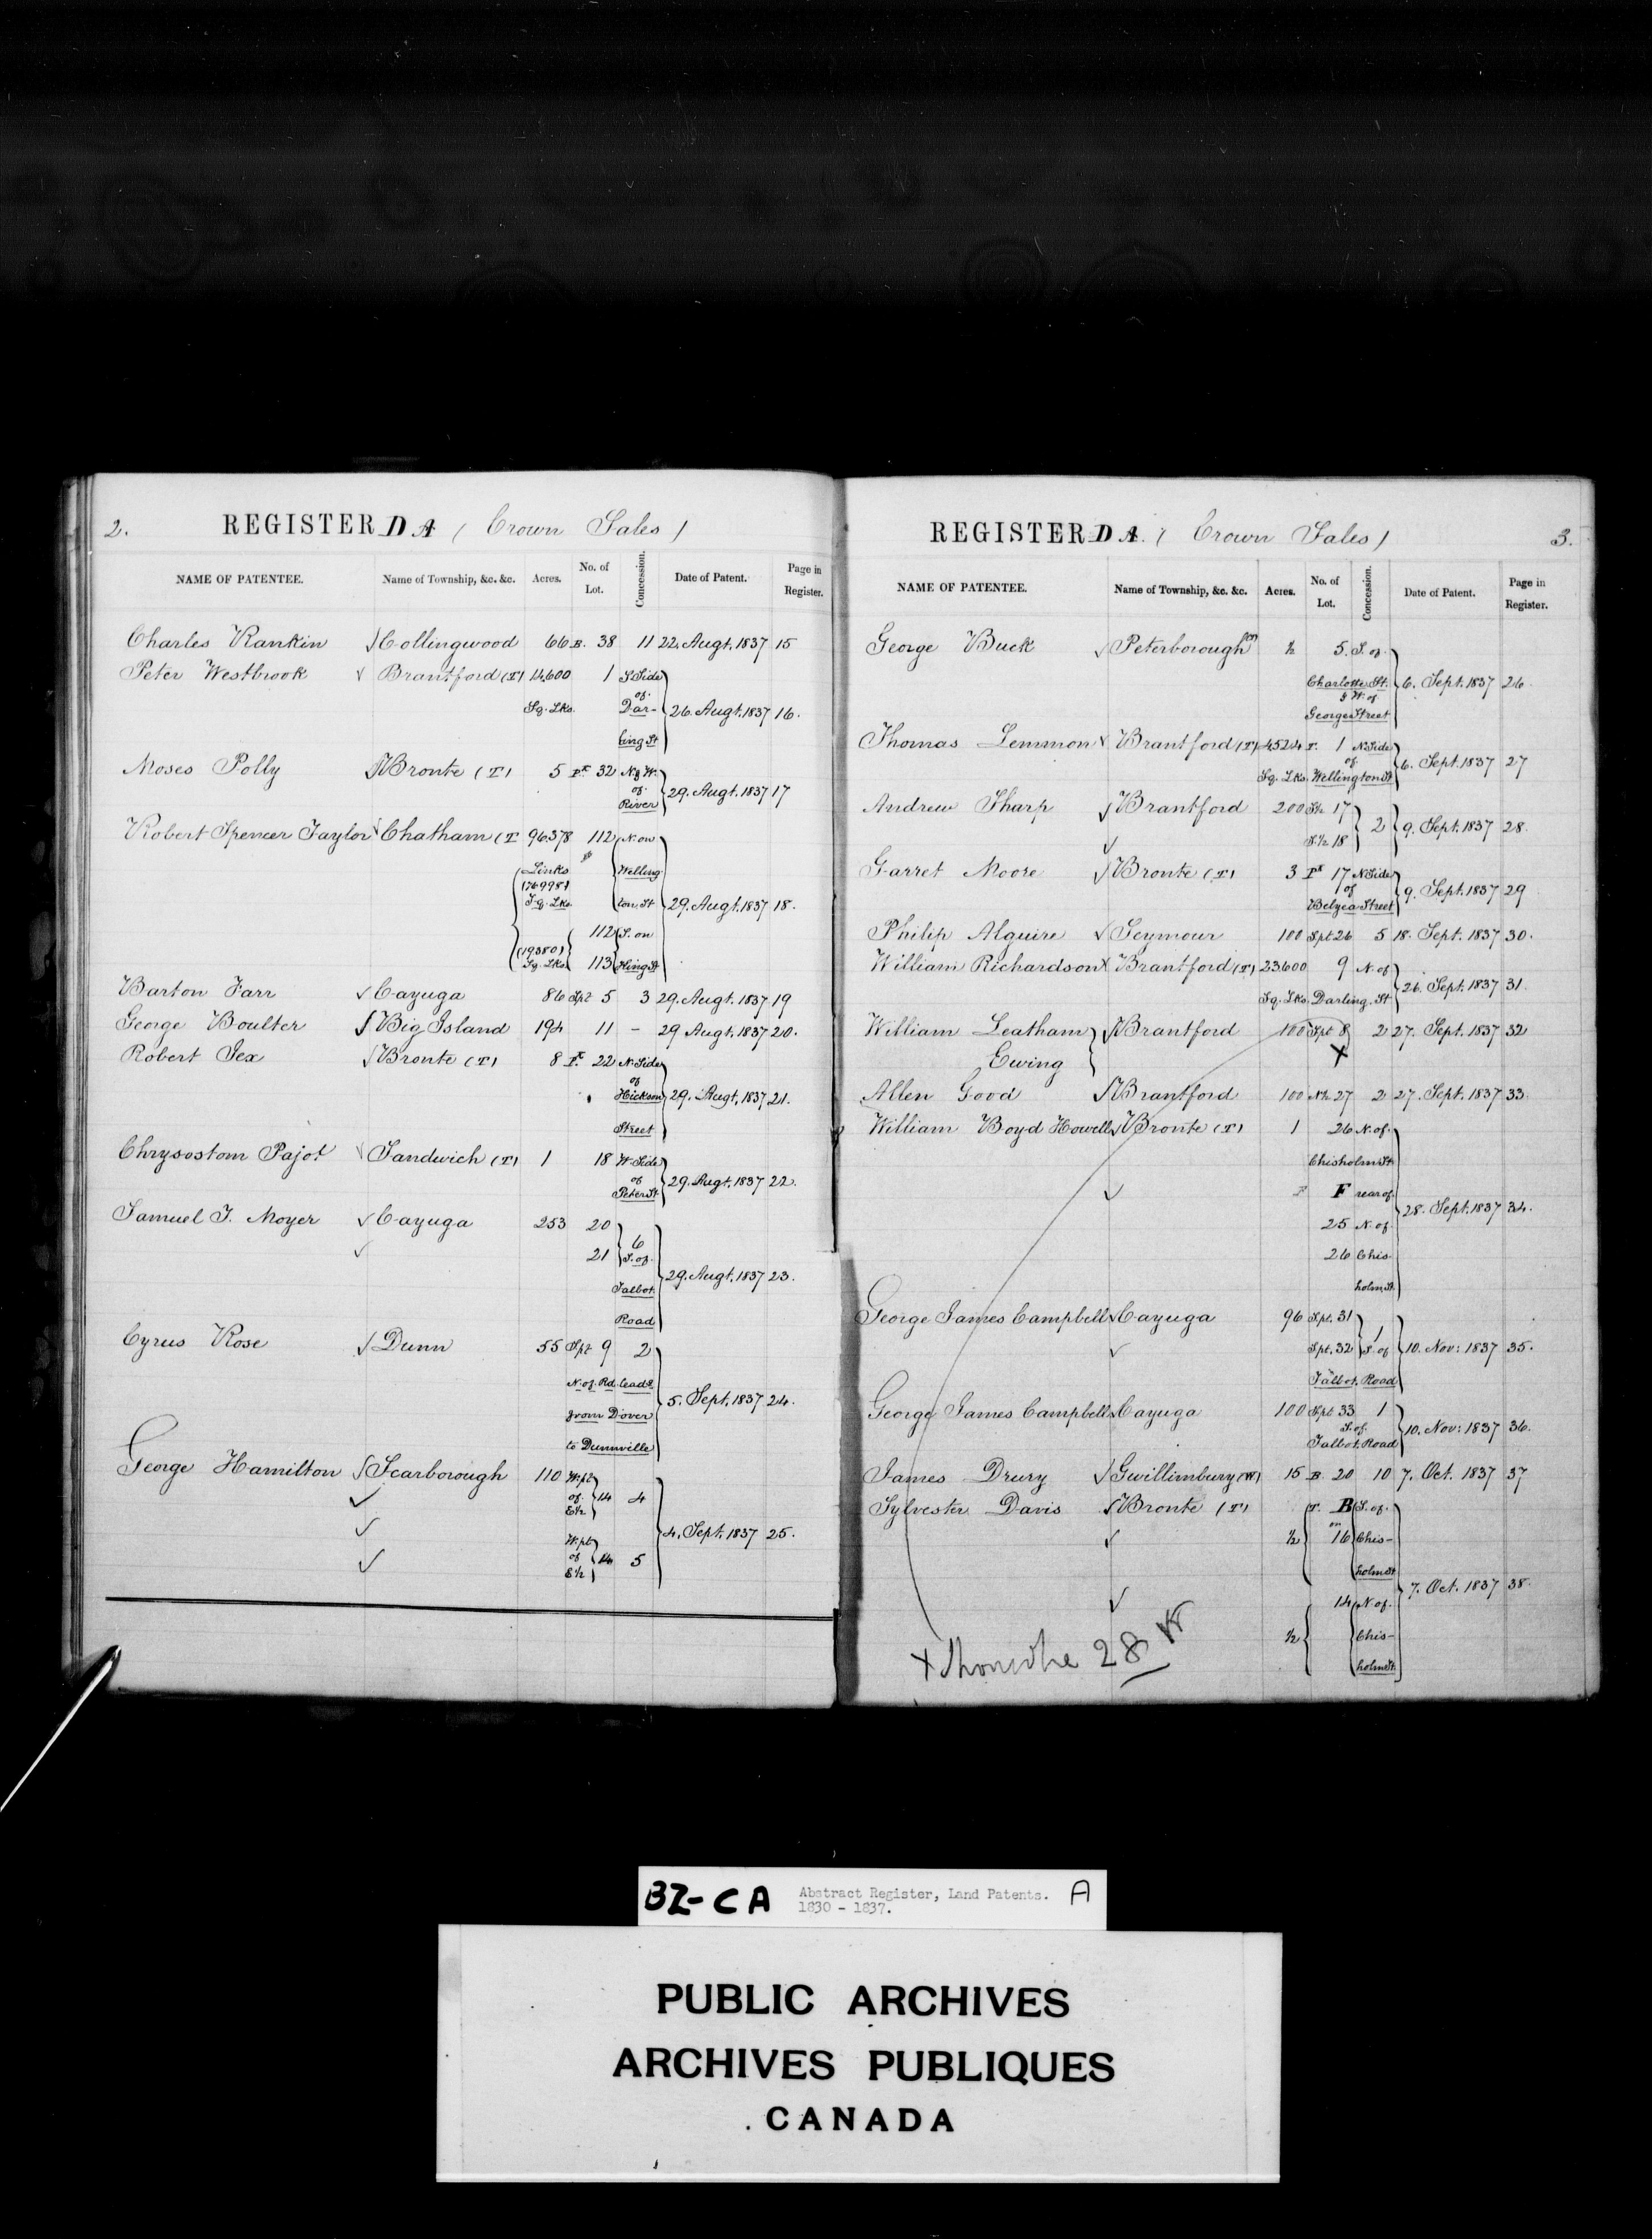 2. REGISTER D A ( Crown Sales )
NAME OF PATENTEE. Name of Township, &c. &c. Acres. No. of Lot. Concession. Date of Patent. Page in Register.
Charles Rankin √ Collingwood 66 B. 38 11 22. Augt. 1837 15
Peter Westbrook √ Brantford (T) 14,600 1 S. Side
of
Sq. Lks. Dar- 26. Augt. 1837 16.
ling St
Moses Polly √ Bronte (T) 5 Pk 32 N. & W.
of 29. Augt. 1837 17
River
Robert Spencer Taylor √ Chatham (T 96378 112 N. on
Links Welling-
(76998)
Sq. Lks. ton St 29. Augt. 1837 18.
112 S. on
(19380)
Sq. Lks. 113 King St
Barton Farr √ Cayuga 86 Spt 5 3 29. Augt. 1837 19
George Boulter √ Big Island 194 11 – 29 Augt. 1837 20.
Robert Jex √ Bronte (T) 8 Pk. 22 N. Side
of
Hickson 29. Augt. 1837 21.
Street
Chrysostom Pajot √ Sandwich (T) 1 18 W. Side
of 29. Augt. 1837 22.
Peter St
Samuel J. Moyer √ Cayuga 253 20
√ 6
21 S. of
Talbot 29. Augt. 1837 23.
Road
Cyrus Rose √ Dunn 55 Spt 9 2
N. of Rd. leadg.
from Dover 5. Sept. 1837 24.
to Dunnville
George Hamilton √ Scarborough 110 W. pt
√ of 14 4
E½
√ 4. Sept. 1837 25.
W. pt
√ of 14 5
E½
REGISTER D A. ( Crown Sales ) 3.
NAME OF PATENTEE. Name of Township, &c. &c. Acres. No. of Lot. Concession. Date of Patent. Page in Register.
George Buck √ Peterborough (T) ½ 5. S. of
Charlotte St. 6. Sept. 1837 26
& W. of
George Street
Thomas Lemmon √ Brantford (T) 4524 T. 1 N. Side
of 6. Sept. 1837 27
Sq. Lks. Wellington St
Andrew Sharp √ Brantford 200 S½ 17
2 9. Sept. 1837 28.
√ S. ½ 18
Garret Moore √ Bronte (T) 3 Pk 17 N. Side
of 9. Sept. 1837 29
Belyea Street
Philip Alguire √ Seymour 100 Spt 26 5 18. Sept. 1837 30.
William Richardson √ Brantford (T) 23600 9 N. of
26. Sept. 1837 31.
Sq. Lks. Darling St
William Leatham √ Brantford 100 Spt 8 2 27. Sept. 1837 32
Ewing X
Allen Good √ Brantford 100 N½ 27 2 27. Sept. 1837 33.
William Boyd Howell √ Bronte (T) 1 26 N. of
Chisholm St
√ F rear of
28. Sept. 1837 34.
25 N. of
26 Chis-
holm St.
George James Campbell √ Cayuga 96 Spt. 31
√ 1
Spt. 32 S. of 10. Nov: 1837 35.
Talbot Road
George James Campbell √ Cayuga 100 Spt 33 1
S. of 10. Nov: 1837 36.
Talbot Road
James Drury √ Gwillimbury (W) 15 B. 20 10 7. Oct. 1837 37
Sylvester Davis √ Bronte (T) T. B S. of
on
√ ½ 16 Chis-
holm St
7. Oct. 1837 38.
√ 14 N. of
½ Chis-
holm St.
X 28
BZ-CA Abstract Register, Land Patents. A
1830 - 1837.
PUBLIC ARCHIVES
ARCHIVES PUBLIQUES
CANADA